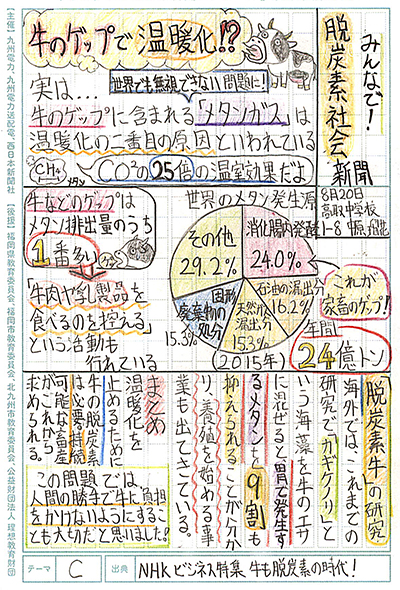 みんなで!
脱炭素社会
新聞
8月20日
高取中学校
牛のゲップで温暖化!?
世界でも無視できない問題に!
実は...
牛のゲップに含まれる「メタンガス」は
温暖化の二番目の原因といわれている
CH4
メタン
CO²の25倍の温室効果だよ
牛などのゲップは
メタン排出量のうち
1番多い
「牛肉や乳製品を
食べるのを控える」
という活動も
行れている
世界のメタン発生源
消化腸内発酵
24.0%
石油の漏出分
16.2%
天然ガス
漏出分
15.3%
固形
廃棄物の
処分
15.3%
その他
29.2%
(2015年)
これが
家畜のゲップ!
年間
24億トン
「脱炭素牛」の研究
海外では、これまでの
研究で「カギケノリ」と
いう海藻を牛のエサ
に混ぜると胃で発生す
るメタンを9割も
抑えられることが分か
り、養殖を始める企
業も出てきている。
まとめ
温暖化を
止めるために
牛の脱炭素
は必要!持続
可能な畜産
がこれから
求められる。
この問題では
人間の勝手で牛に負担
をかけないようにするこ
とも大切だと思いました!
テーマ
C
出典
NHKビジネス特集 牛も脱炭素の時代!
【主催】九州電力、九州電力送配電、西日本新聞社 【後援】福岡県教育委員会、福岡市教育委員会、北九州市教育委員会、公益財団法人 理想教育財団